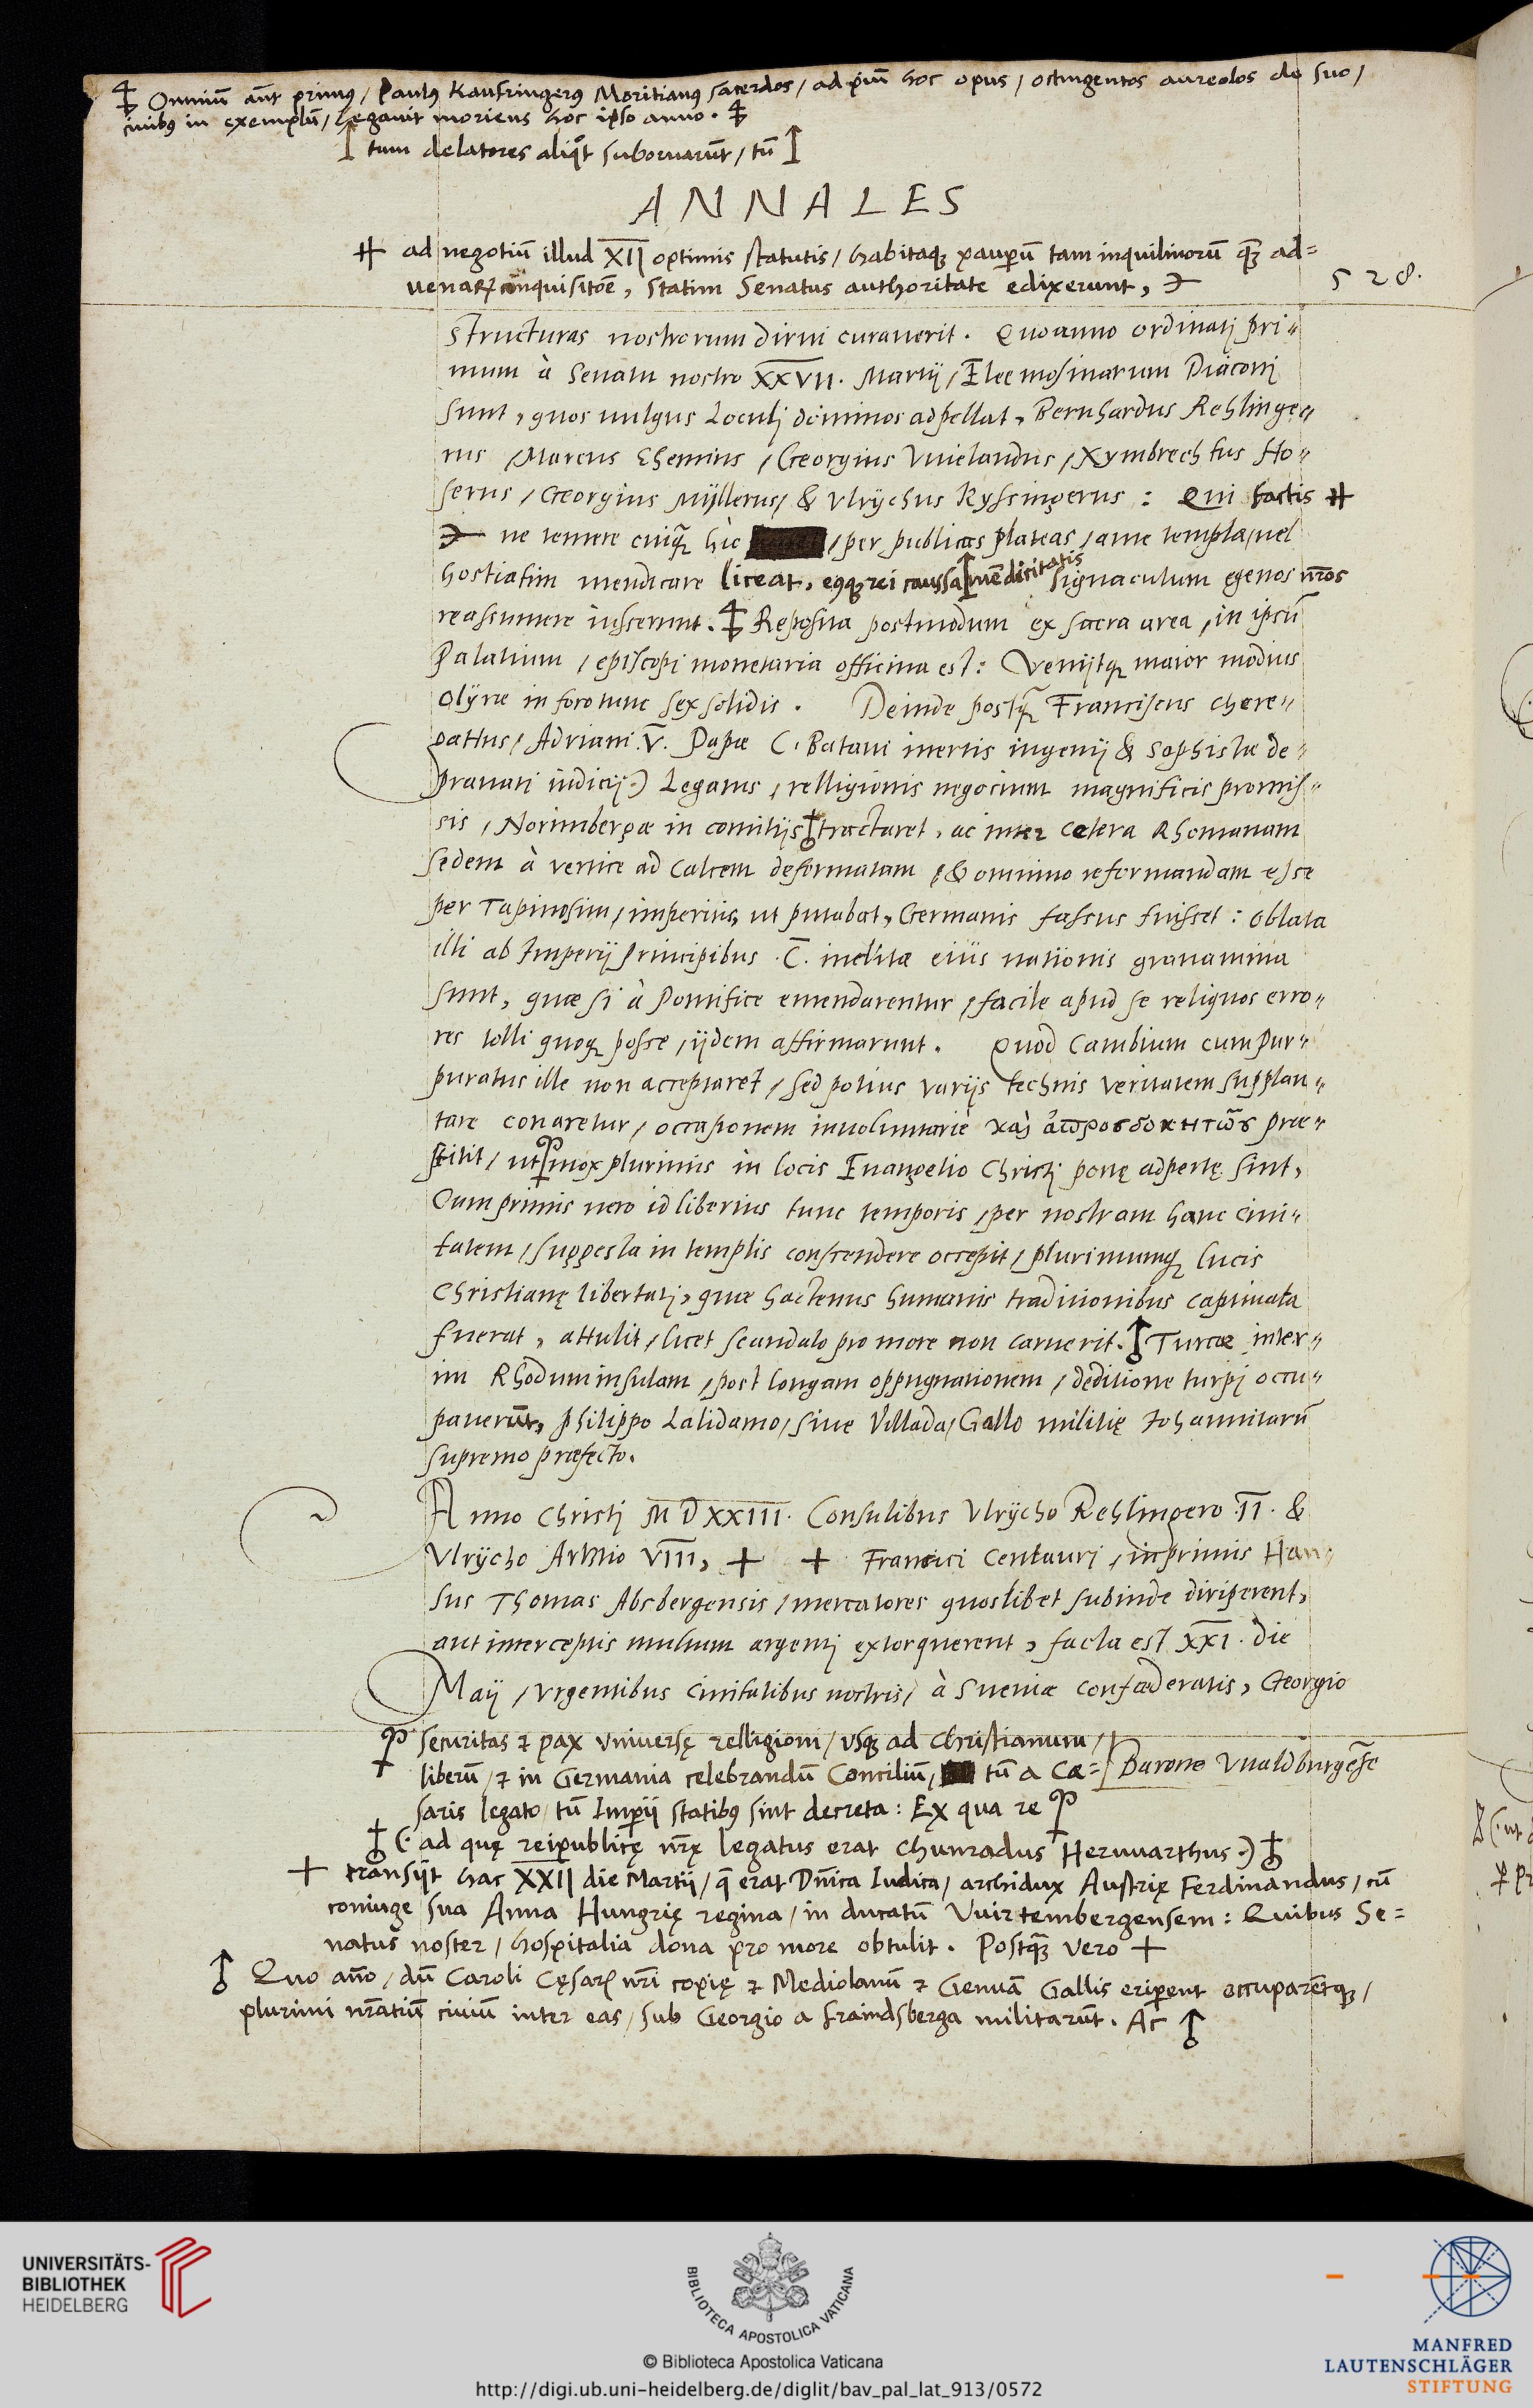 Omniū aūt primꝰ / Paulꝰ Kaufringerꝰ Moritianꝰ sacerdos / ad piū hoc opus / octingentos aureolos de suo /
ciuibꝰ in exemplū / legauit moriens hoc ipso anno .
tum delatores aliqͦt subornarūt / tū
ANNALES
ad negotiū illud XII optimis statutis / habitaqꝫ pauperū tam inquilinorū qꝫ ad=
uenarꝝ inquisitōe, statim Senatus authoritate edixerunt,
528.
structuras nostrorum dirui curauerit . Quo anno ordinatj pri=
mum à Senatu nostro XXVII. Martij / Eleemosinarum Diaconj
sunt, quos uulgus Loculj dominos adpellat, Bernhardus Rehlinge=
rus / Marcus Ehemius / Georgius Vuielandus / Xymbrechtus Ho=
serus / Georgius Myllerus / & Vlrychus Kyssingerus : Qui factis
ne temere cuiqꝫ hic / per publicas plateas / ante templa / uel
hostiatim mendicare liceat, eiꝰqꝫ rei caussa mēdicitatis signaculum egenos nr̄os
reassumere iusserunt. Reposita postmodum ex sacra area / in ipsū
Palatium / episcopi monetaria officina est : Venijtqꝫ maior modius
Olyrae in foro tunc sex solidis . Deinde postqꝫ Franciscus Chere=
gattus / Adriani .V. Papae (. Bataui inertis ingenij & sophistae de=
prauati iudicij .) Legatus / relligionis negocium magnificis promis=
sis / Norimbergae in comitijs tractaret, ac inter cetera Rhomanam
sedem à vertice ad calcem deformatam / & omnino reformandam esse
per Tapinosim / imperitis, ut putabat, Germanis fassus fuisset : oblata
illi ab Imperij Principibus .C. inclitae eius nationis grauamina
sunt, quae si à Pontifice emendarentur / facile apud se reliquos erro=
res tolli quoqꝫ posse / ijdem affirmarunt . Quod Cambium cum Pur=
puratus ille non acceptaret / sed potius varijs technis veritatem supplan=
tare conaretur / occasionem inuoluntariè καὶ ἀπροσδοκητῶς prae=
stitit / ut mox plurimis in locis Euangelio Christj portę adpertę sint,
Cum primis uero id liberius tunc temporis / per nostram hanc Ciui=
tatem / suggesta in templis conscendere occepit / plurimumqꝫ lucis
Christianę libertatj, quae hactenus humanis traditionibus captiuata
fuerat, attulit / licet scandalo pro more non caruerit . Turcae inter=
im Rhodum insulam / post longam oppugnationem / deditione turpj occu=
pauerūt, Philippo Lalidamo / siue Villada / Gallo militię Johannitarū
supremo praefecto.
Anno Christj MDXXIII. Consulibus Vlrycho Rehlingero .II. &
Vlrycho Arttio VIII, Francici Centaurj / inprimis Han=
sus Thomas Absbergensis / mercatores quoslibet subinde diriperent,
aut interceptis multum argentj extorquerent, facta est XXI. die
Maij / vrgentibus Ciuitatibus nostris / à Sueuiae confoederatis, Georgio
securitas ⁊ pax vniuersę relligioni / vsqꝫ ad Christianum /
liberū / ⁊ in Germania celebrandū Concilium / tū a Cæ= Barone Vualdburgēse
saris legato / tū Imperij statibꝰ sint decreta : Ex qua re
(. ad quę reipublicę nr̄ę legatus erat Chunradus Heruuarthus .)
transijt hac XXII die Martij / q̄ erat Dn̄ica Iudica / archidux Austrię Ferdinandus / cū
coniuge sua Anna Hungrię regina / in ducatū Vuirtembergensem : Quibus Se=
natus noster / hospitalia dona pro more obtulit . Postqꝫ vero
Quo año / dū Caroli Cęsarꝭ nr̄i copię ⁊ Mediolanū ⁊ Genuā Gallis eriperent occuparētqꝫ /
plurimi nr̄atiū ciuiū inter eas / sub Georgio a Fraindsberga militarūt . Ac
UNIVERSITÄTS-
BIBLIOTHEK
HEIDELBERG
BIBLIOTECA APOSTOLICA VATICANA
© Biblioteca Apostolica Vaticana
http://digi.ub.uni-heidelberg.de/diglit/bav_pal_lat_913/0572
MANFRED
LAUTENSCHLÄGER
STIFTUNG